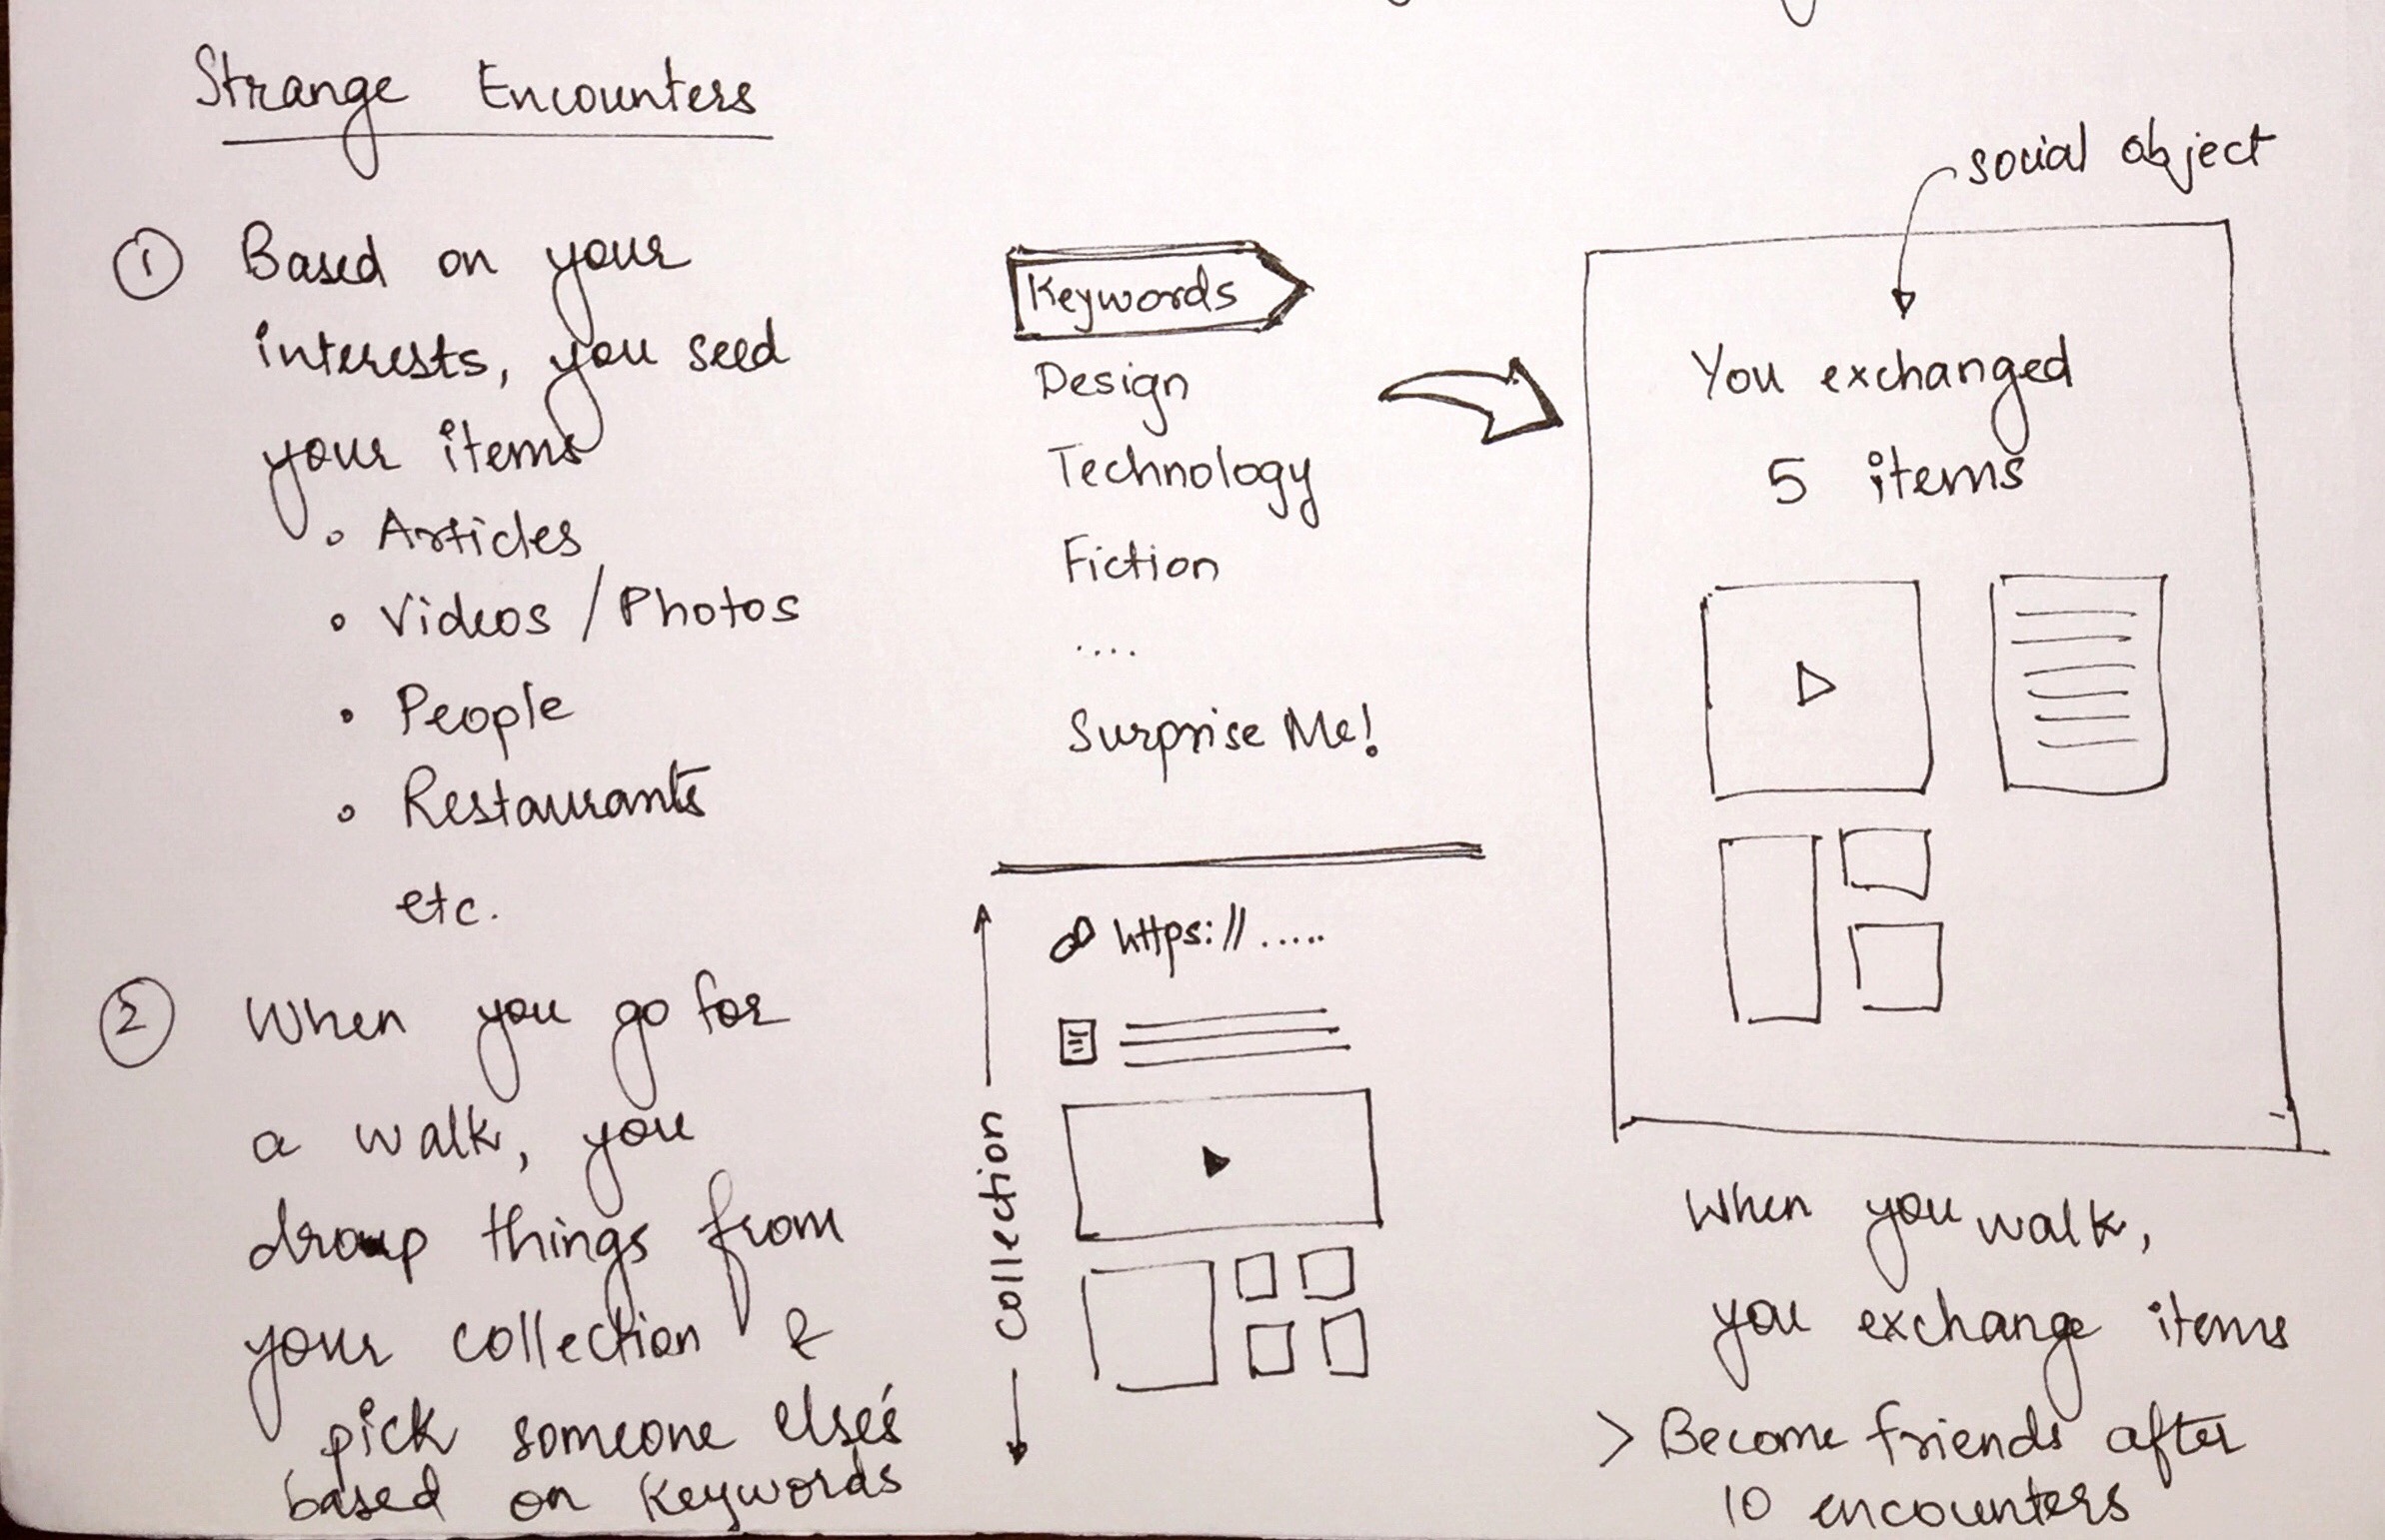 Strange Encounters
① Based on your
interests, you seed
your items
• Articles
• Videos / Photos
• People
• Restaurants
etc.
② When you go for
a walk, you
drop things from
your collection &
pick someone else's
based on Keywords
Keywords
Design
Technology
Fiction
....
Surprise Me!
https://.....
collection
social object
You exchanged
5 items
When you walk,
you exchange items
> Become friends after
10 encounters